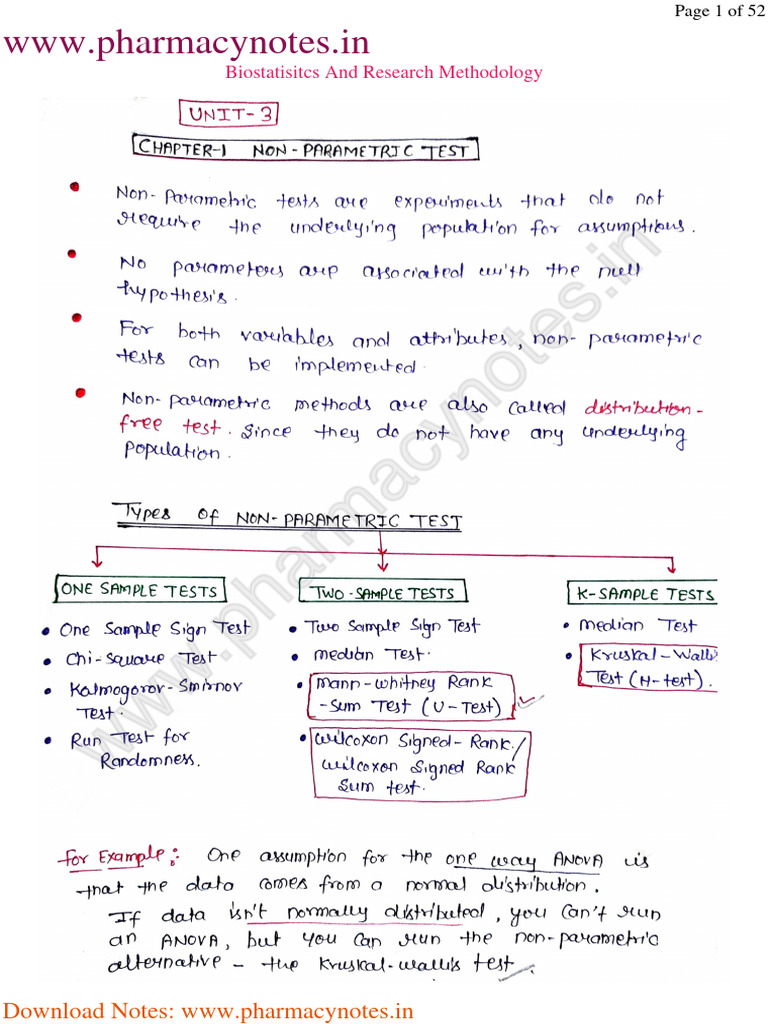 Page 1 of 52
www.pharmacynotes.in
Biostatisitcs And Research Methodology
UNIT-3
CHAPTER-1 NON-PARAMETRIC TEST
• Non-Parametric tests are experiments that do not
require the underlying population for assumptions.
• No parameters are associated with the null
hypothesis.
• For both variables and attributes, non-parametric
tests can be implemented.
• Non-parametric methods are also called distribution-
free test. Since they do not have any underlying
population.
Types of NON-PARAMETRIC TEST
ONE SAMPLE TESTS
• One Sample Sign Test
• Chi-Square Test
• Kolmogorov-Smirnov
Test.
• Run Test for
Randomness.
TWO-SAMPLE TESTS
• Two Sample Sign Test
• Median Test.
• Mann-Whitney Rank
-Sum Test (U-Test)
• Wilcoxon Signed-Rank/
Wilcoxon Signed Rank
Sum test.
K-SAMPLE TESTS
• Median Test
• Kruskal-Wallis
Test (H-test).
For Example: One assumption for the one way ANOVA is
that the data comes from a normal distribution.
If data isn't normally distributed, you can't run
an ANOVA, but you can run the non-parametric
alternative - the Kruskal-Wallis test.
www.pharmacynotes.in
Download Notes: www.pharmacynotes.in